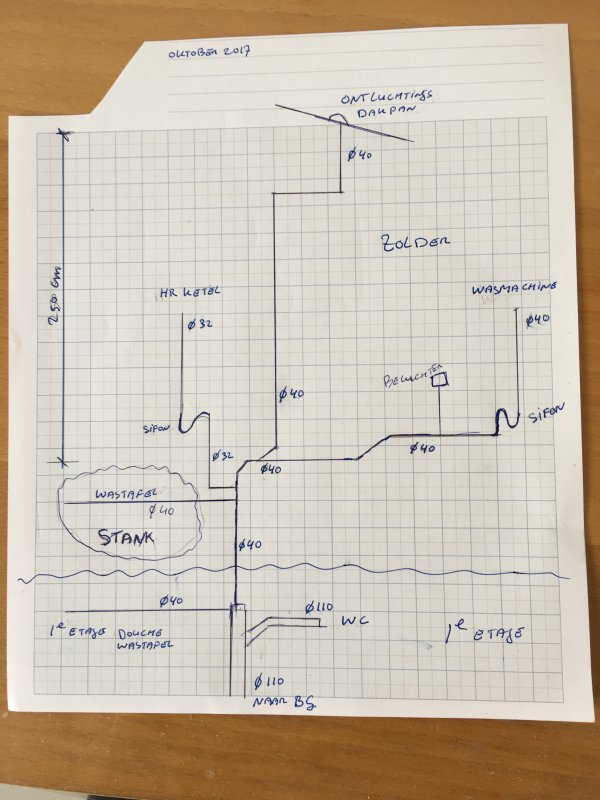 OKTOBER 2017
ONTLUCHTINGS
DAKPAN
Ø40
ZOLDER
HR KETEL
WASMACHINE
250 cm
Ø32
Ø40
BELUCHTER
Ø40
SIFON
SIFON
Ø32
Ø40
Ø40
WASTAFEL
Ø40
STANK
Ø40
Ø40
Ø110
WC
1e ETAJE DOUCHE
WASTAFEL
1e ETAJE
Ø110
NAAR BG